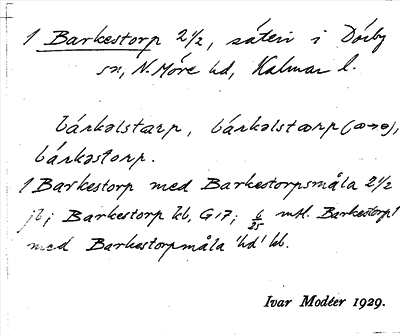 1 Barkestorp 2 1/2, säteri i Dörby
sn, N. Möre hd, Kalmar l.
bárkəlstærp, bárkəlstærp (æ→ɵ),
bárkəstorp.
1 Barkestorp med Barkestorpsmåla 2 1/2
jb; Barkestorp kb, G 17; 6/25 mtl. Barkestorp
med Barkestorpmåla 'hd' kb.
Ivar Modéer 1929.